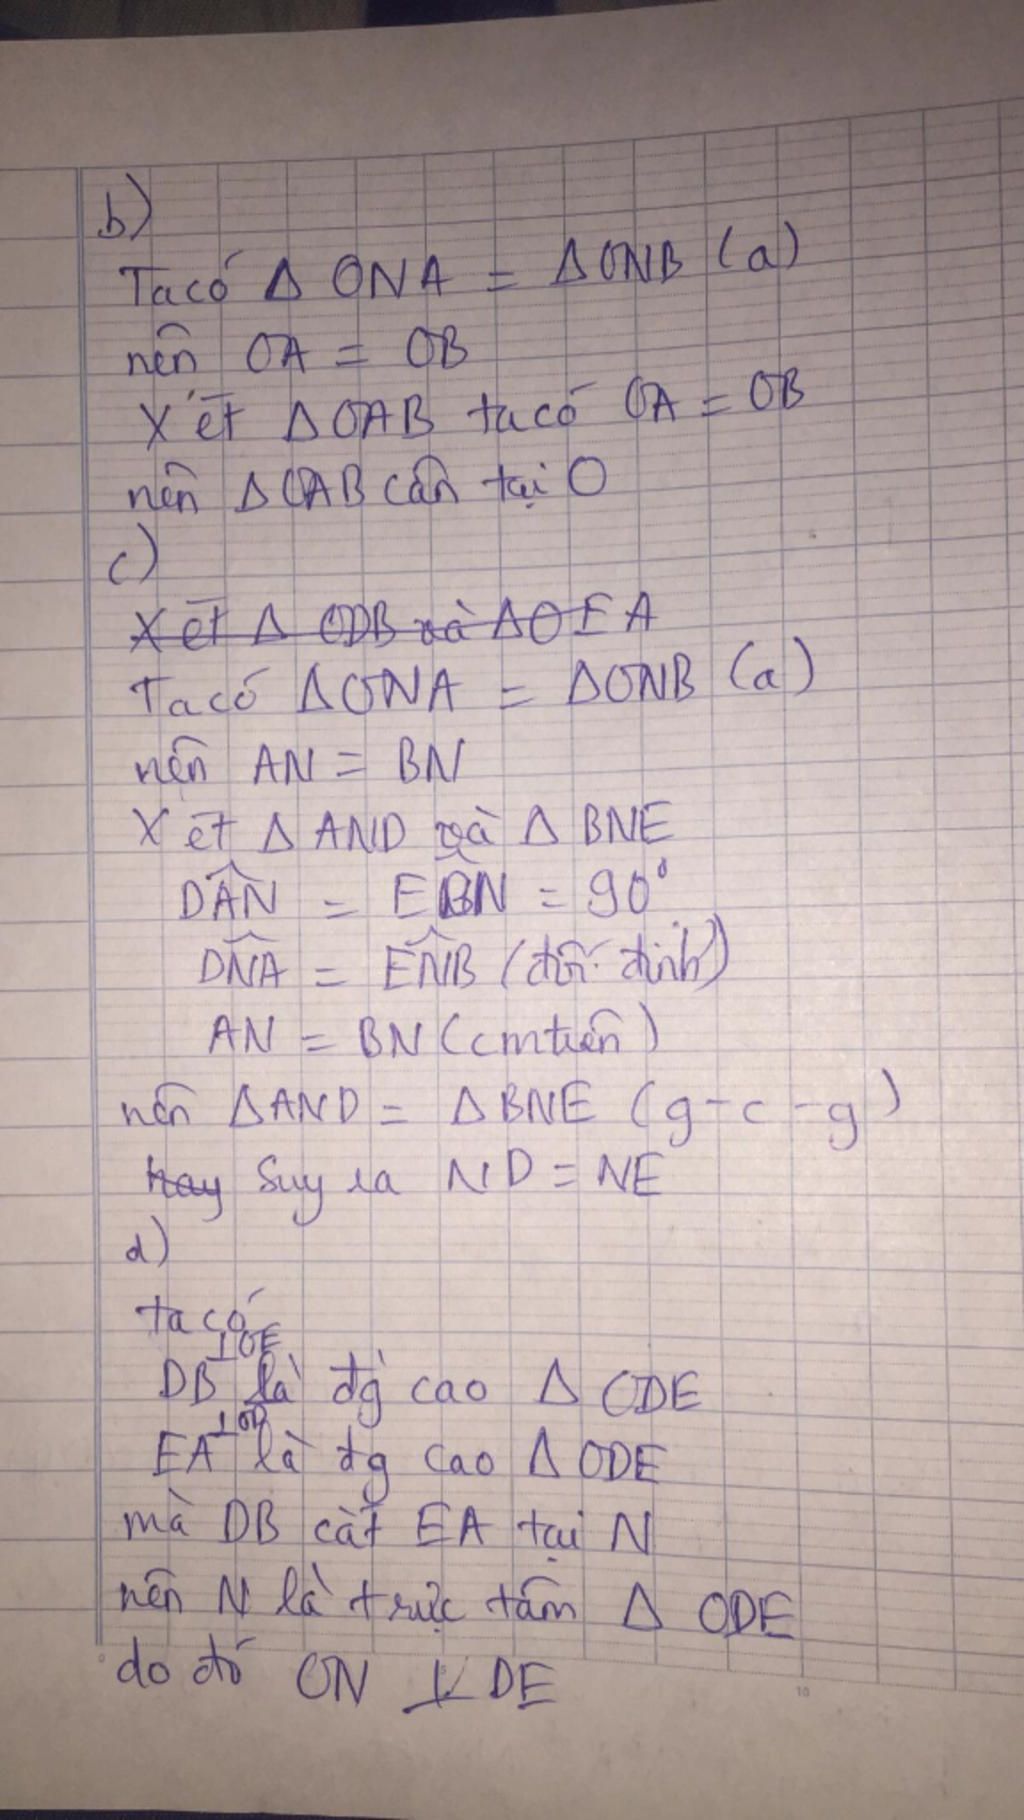 b)
Ta có Δ ONA = Δ ONB (a)
nên OA = OB
Xét Δ OAB ta có OA = OB
nên Δ OAB cân tại O
c)
Xét Δ ODB và Δ OEA
Ta có Δ ONA = Δ ONB (a)
nên AN = BN
Xét Δ AND và Δ BNE
DÂN = EBN = 90°
DNA = ENB (đối đỉnh)
AN = BN (cmtrên)
nên Δ AND = Δ BNE (g-c-g)
hay Suy ra ND = NE
d)
ta có
DB ⊥OE là đg cao Δ ODE
EA ⊥OD là đg cao Δ ODE
mà DB cắt EA tại N
nên N là trực tâm Δ ODE
do đó ON ⊥ DE
10